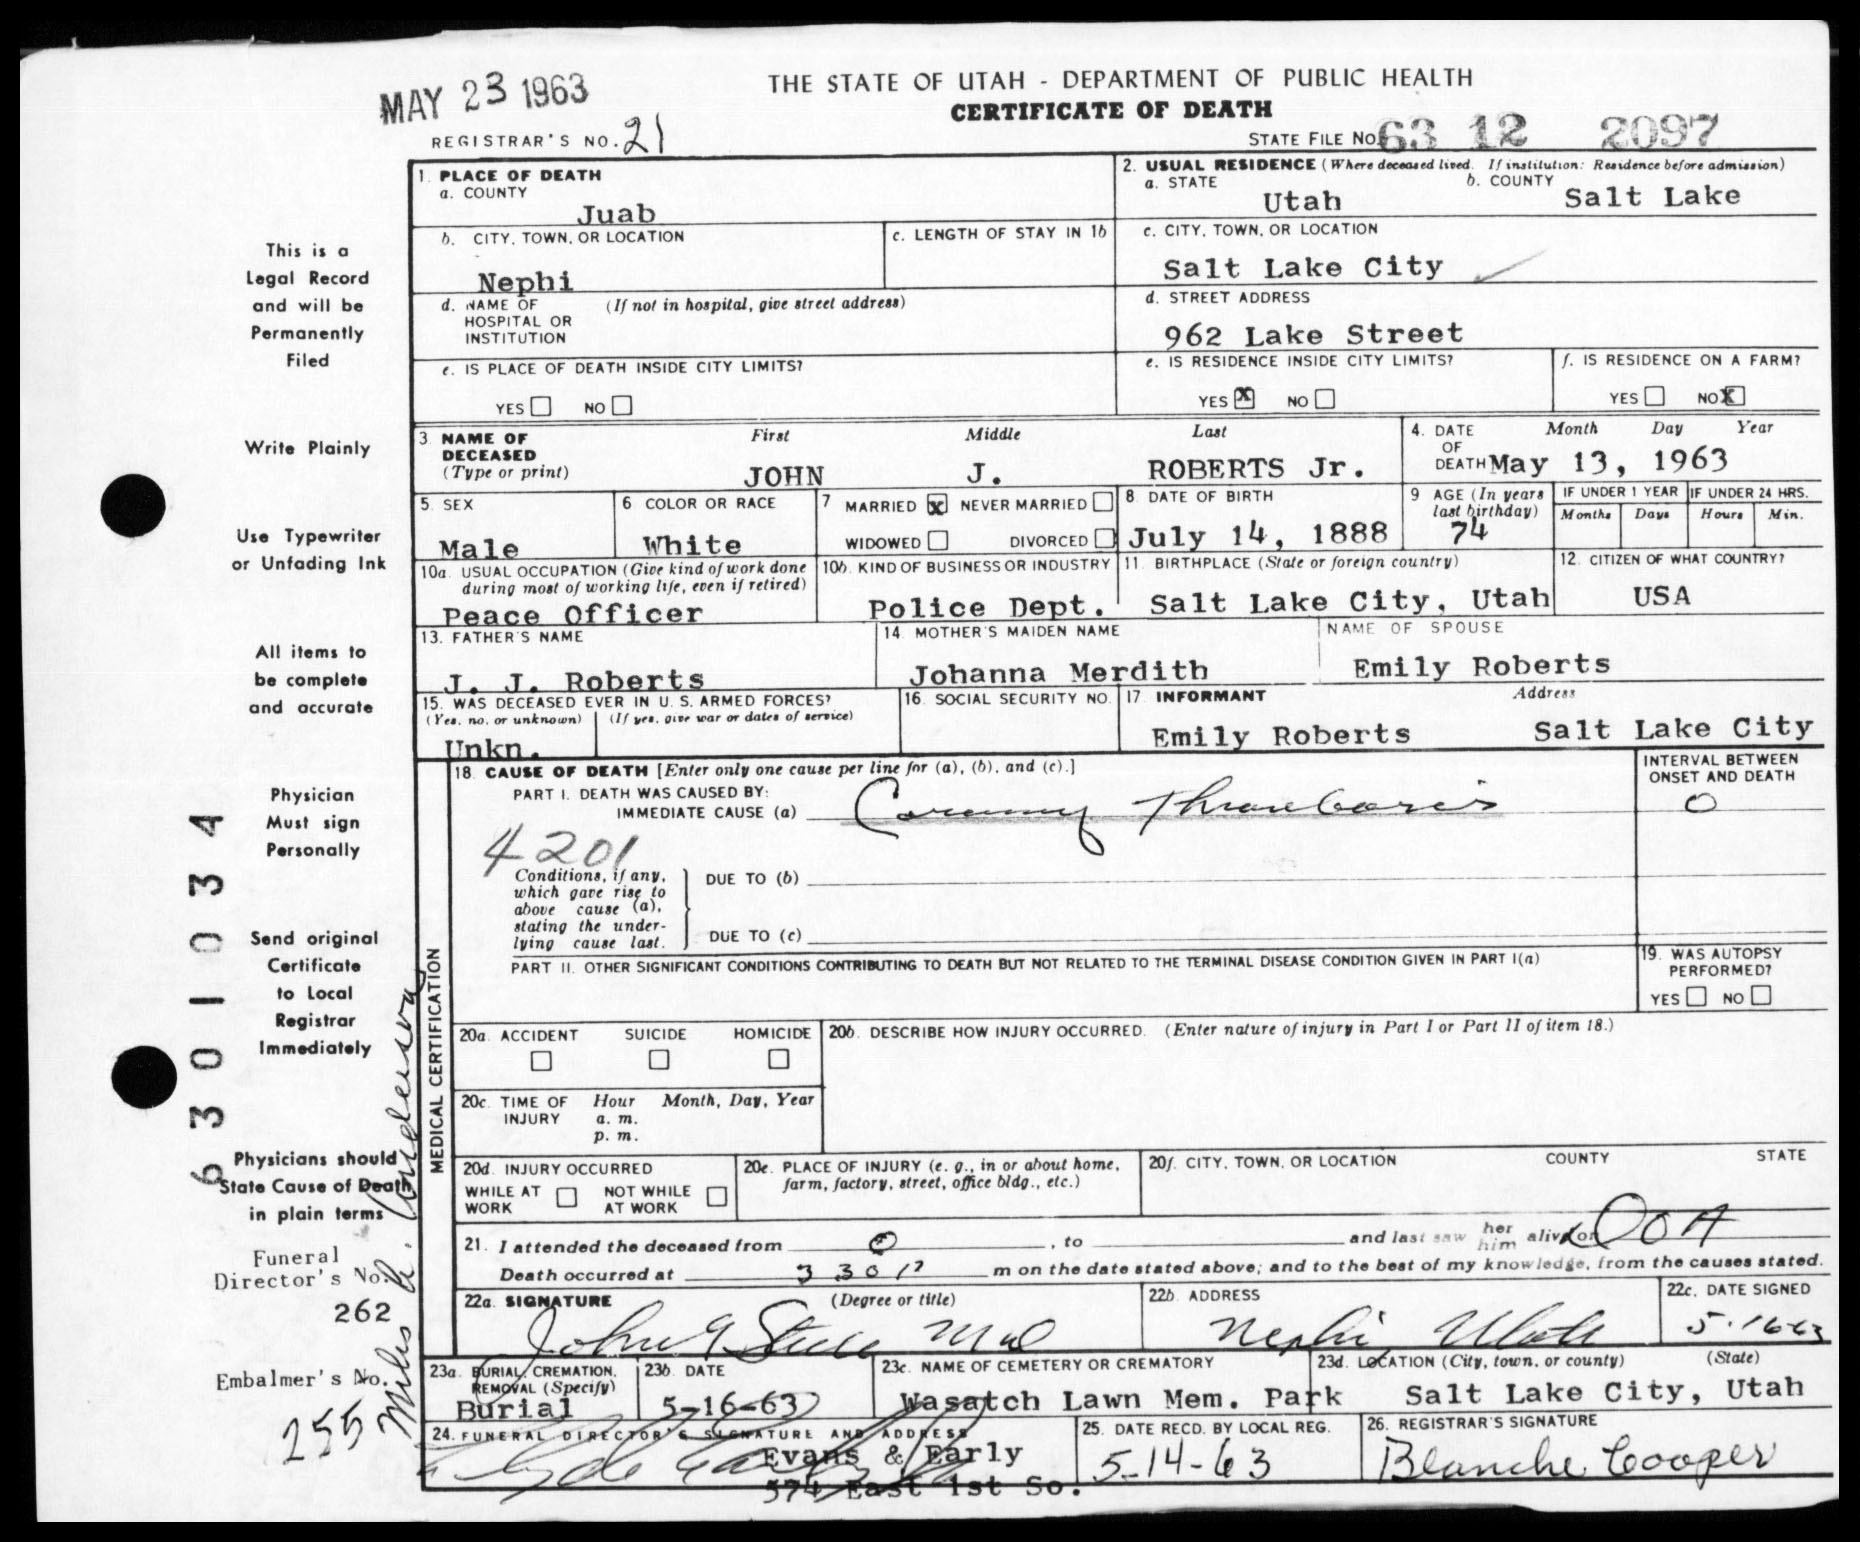 MAY 23 1963
THE STATE OF UTAH - DEPARTMENT OF PUBLIC HEALTH
CERTIFICATE OF DEATH
REGISTRAR'S NO. 21
STATE FILE NO. 63 12 2097
1. PLACE OF DEATH
a. COUNTY
Juab
2. USUAL RESIDENCE (Where deceased lived. If institution: Residence before admission)
a. STATE
Utah
b. COUNTY
Salt Lake
b. CITY, TOWN, OR LOCATION
Nephi
c. LENGTH OF STAY IN 1b
c. CITY, TOWN, OR LOCATION
Salt Lake City
d. NAME OF HOSPITAL OR INSTITUTION
(If not in hospital, give street address)
d. STREET ADDRESS
962 Lake Street
e. IS PLACE OF DEATH INSIDE CITY LIMITS?
YES NO
e. IS RESIDENCE INSIDE CITY LIMITS?
YES X NO
f. IS RESIDENCE ON A FARM?
YES NO X
3. NAME OF DECEASED (Type or print)
First Middle Last
JOHN J. ROBERTS Jr.
4. DATE OF DEATH
Month Day Year
May 13, 1963
5. SEX
Male
6 COLOR OR RACE
White
7 MARRIED X NEVER MARRIED
WIDOWED DIVORCED
8 DATE OF BIRTH
July 14, 1888
9 AGE (In years last birthday)
74
IF UNDER 1 YEAR
Months Days
IF UNDER 24 HRS.
Hours Min.
10a. USUAL OCCUPATION (Give kind of work done during most of working life, even if retired)
Peace Officer
10b. KIND OF BUSINESS OR INDUSTRY
Police Dept.
11. BIRTHPLACE (State or foreign country)
Salt Lake City, Utah
12. CITIZEN OF WHAT COUNTRY?
USA
13. FATHER'S NAME
J. J. Roberts
14. MOTHER'S MAIDEN NAME
Johanna Merdith
NAME OF SPOUSE
Emily Roberts
15. WAS DECEASED EVER IN U. S. ARMED FORCES?
(Yes, no, or unknown) (If yes, give war or dates of service)
Unkn.
16. SOCIAL SECURITY NO.
17. INFORMANT Address
Emily Roberts Salt Lake City
MEDICAL CERTIFICATION
18. CAUSE OF DEATH [Enter only one cause per line for (a), (b), and (c).]
INTERVAL BETWEEN ONSET AND DEATH
PART I. DEATH WAS CAUSED BY:
IMMEDIATE CAUSE (a) Coronary Thrombosis
0
4201
Conditions, if any, which gave rise to above cause (a), stating the underlying cause last.
DUE TO (b)
DUE TO (c)
PART II. OTHER SIGNIFICANT CONDITIONS CONTRIBUTING TO DEATH BUT NOT RELATED TO THE TERMINAL DISEASE CONDITION GIVEN IN PART I(a)
19. WAS AUTOPSY PERFORMED?
YES NO
20a. ACCIDENT SUICIDE HOMICIDE
20b. DESCRIBE HOW INJURY OCCURRED. (Enter nature of injury in Part I or Part II of item 18.)
20c. TIME OF INJURY
Hour Month, Day, Year
a. m.
p. m.
20d. INJURY OCCURRED
WHILE AT WORK NOT WHILE AT WORK
20e. PLACE OF INJURY (e. g., in or about home, farm, factory, street, office bldg., etc.)
20f. CITY, TOWN, OR LOCATION COUNTY STATE
21. I attended the deceased from 0, to and last saw her him alive on DOA
Death occurred at 3 30 P m on the date stated above; and to the best of my knowledge, from the causes stated.
22a. SIGNATURE (Degree or title)
John G Steele Md
22b. ADDRESS
Nephi Utah
22c. DATE SIGNED
5-16-63
23a. BURIAL, CREMATION, REMOVAL (Specify)
Burial
23b. DATE
5-16-63
23c. NAME OF CEMETERY OR CREMATORY
Wasatch Lawn Mem. Park
23d. LOCATION (City, town, or county) (State)
Salt Lake City, Utah
24. FUNERAL DIRECTOR'S SIGNATURE AND ADDRESS
Evans & Early
574 East 1st So.
25. DATE RECD. BY LOCAL REG.
5-14-63
26. REGISTRAR'S SIGNATURE
Blanche Cooper
This is a
Legal Record
and will be
Permanently
Filed
Write Plainly
Use Typewriter
or Unfading Ink
All items to
be complete
and accurate
Physician
Must sign
Personally
Send original
Certificate
to Local
Registrar
Immediately
Physicians should
State Cause of Death
in plain terms
Funeral
Director's No.
262
Embalmer's No.
255
6301034